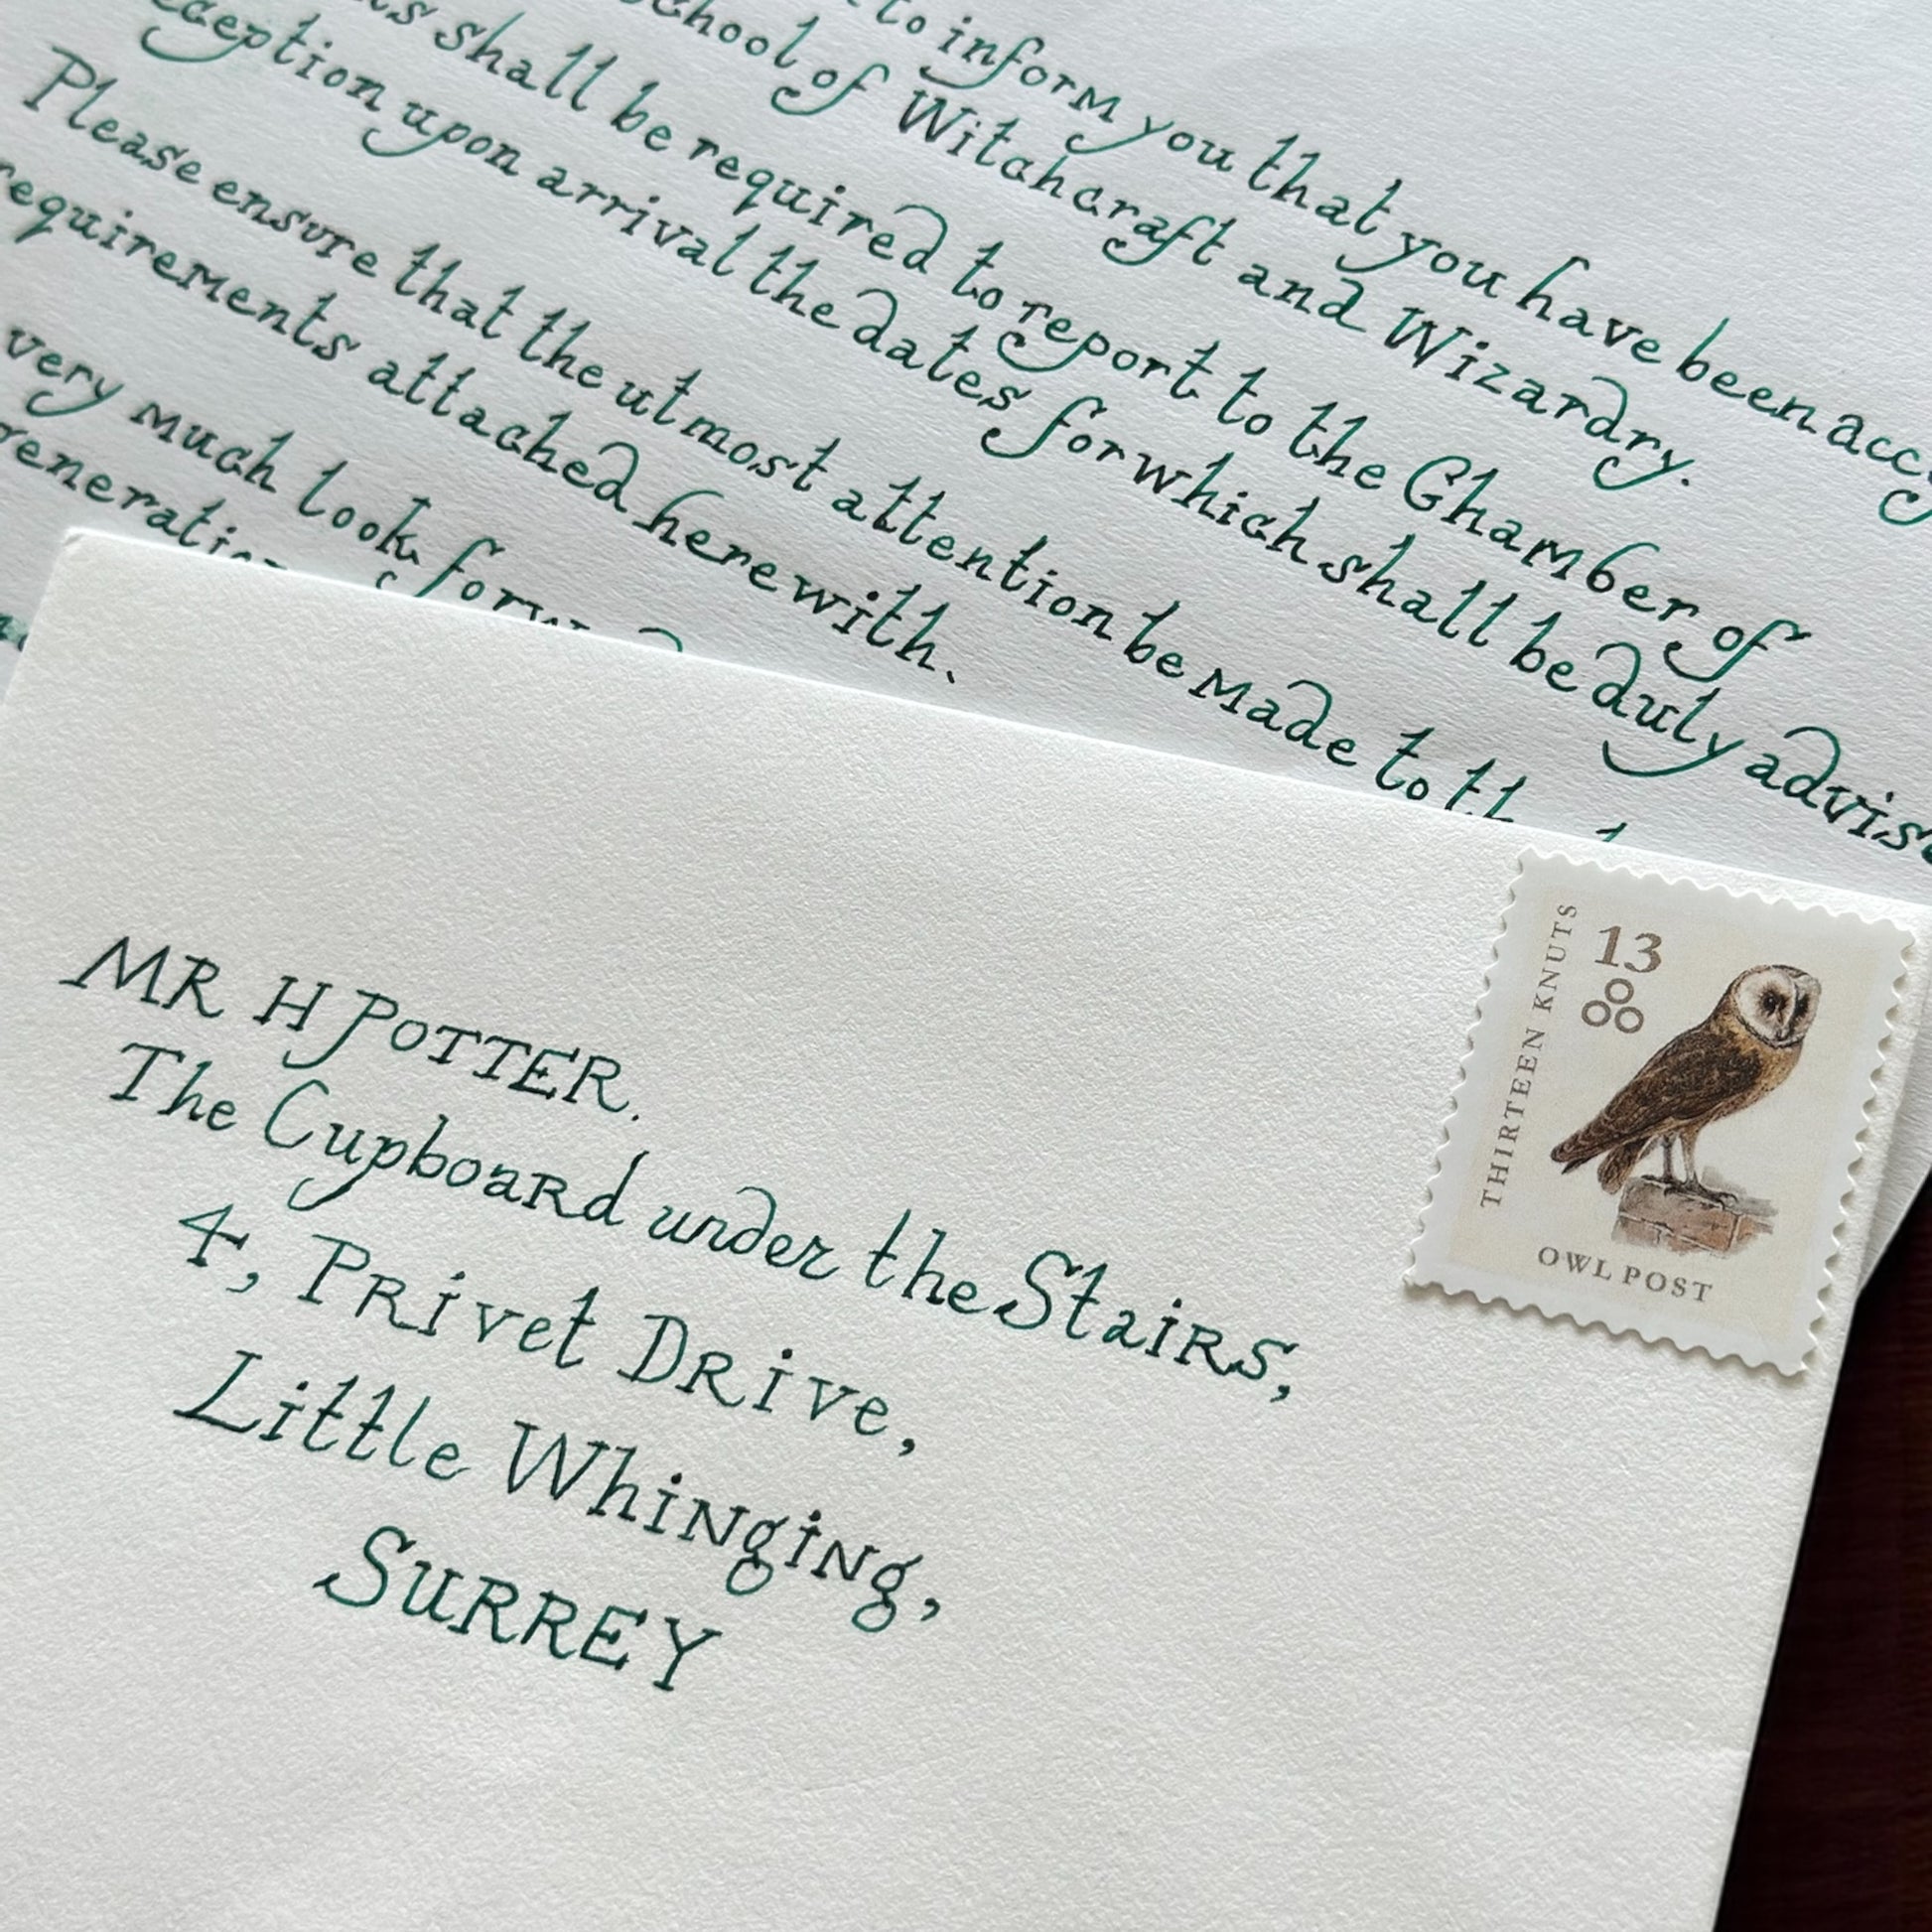 to inform you that you have been
School of Witchcraft and Wizardry.
shall be required to report to the Chamber of
upon arrival the dates for which shall be duly
Please ensure that the utmost attention be made to
requirements attached herewith.
very much look
MR H POTTER.
The Cupboard under the Stairs,
4, Privet Drive,
Little Whinging,
SURREY
THIRTEEN KNUTS
13
OWL POST